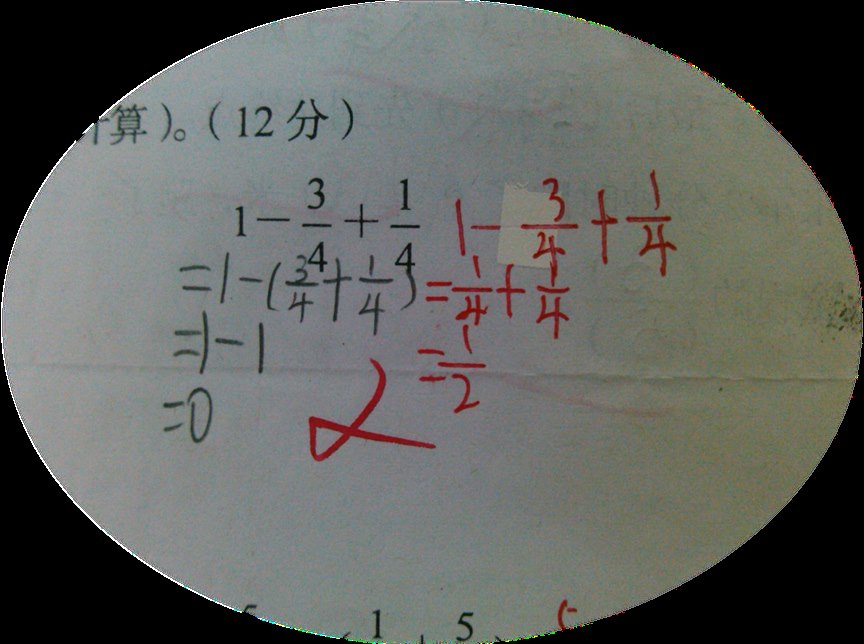 算)。(12分)
1 - 3/4 + 1/4
=1-(3/4+1/4)
=1-1
=0
1-3/4+1/4
=1/4+1/4
=1/2
1 5